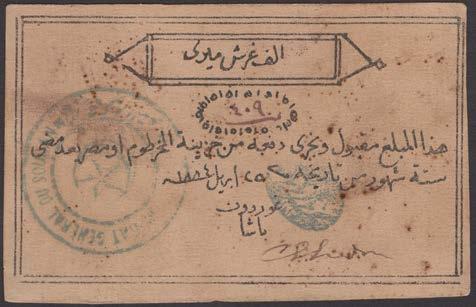 الف غرش ميرى
٤٠٩
هذا المبلغ مقبول ويجرى دفعه من خزينة الخرطوم او مصر بعد مضى
ستة شهور من تاريخه ٢٥ ابريل ١٨٨٤
غوردون
باشا
GENERAL DU SOU